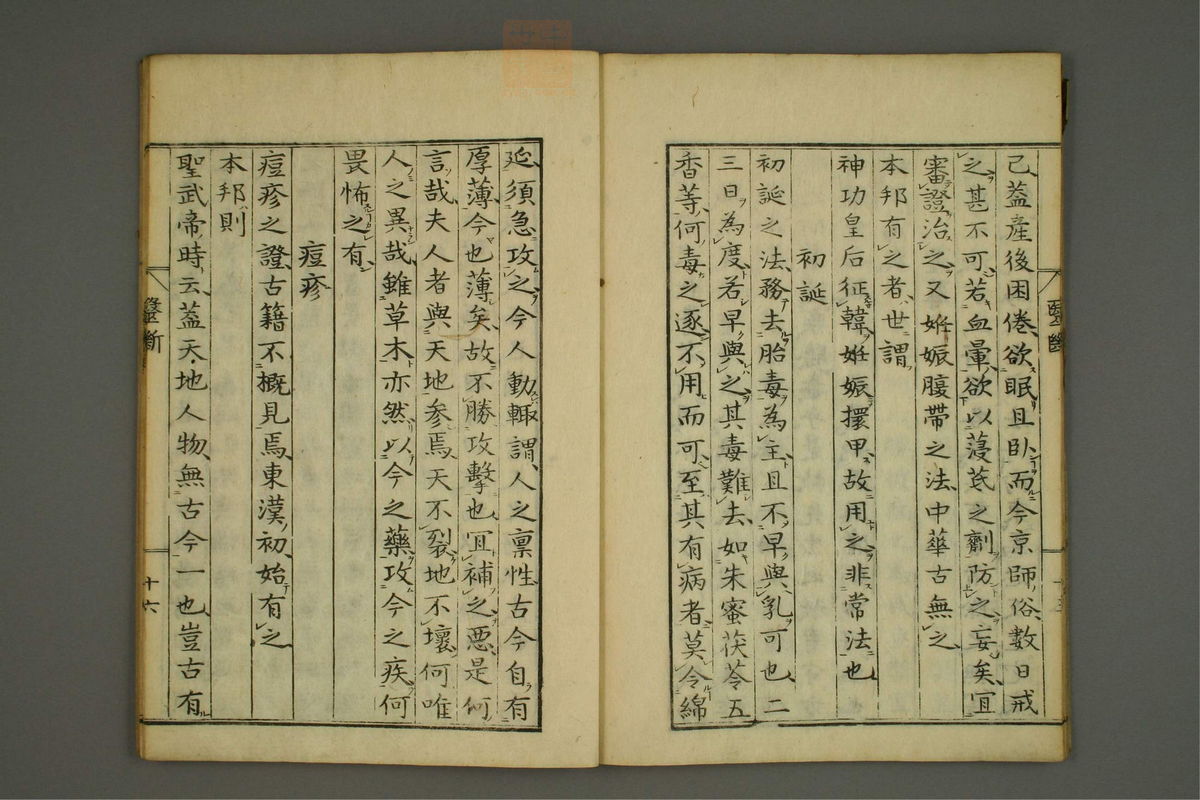 己蓋産後困倦欲眠且臥而今京師俗數日戒
之甚不可若血暈欲以蔆芪之劑防之妄矣宜
審證治之又妊娠腹帶之法中華古無之
本邦有之者世謂
神功皇后征韓妊娠擐甲故用之非常法也
初誕
初誕之法務去胎毒為主且不早與乳可也二
三日為度若早與之其毒難去如朱蜜茯苓五
香等何毒之逐不用而可至其有病者莫令綿
延須急攻之今人動輙謂人之禀性古今自有
厚薄今也薄矣故不勝攻擊也宜補之悪是何
言哉夫人者與天地參焉天不裂地不壞何唯
人之異哉雖草木亦然以今之藥攻今之疾何
畏怖之有
痘疹
痘疹之證古籍不概見焉東漢初始有之
本邦則
聖武帝時云蓋天地人物無古今一也豈古有
醫斷
十六